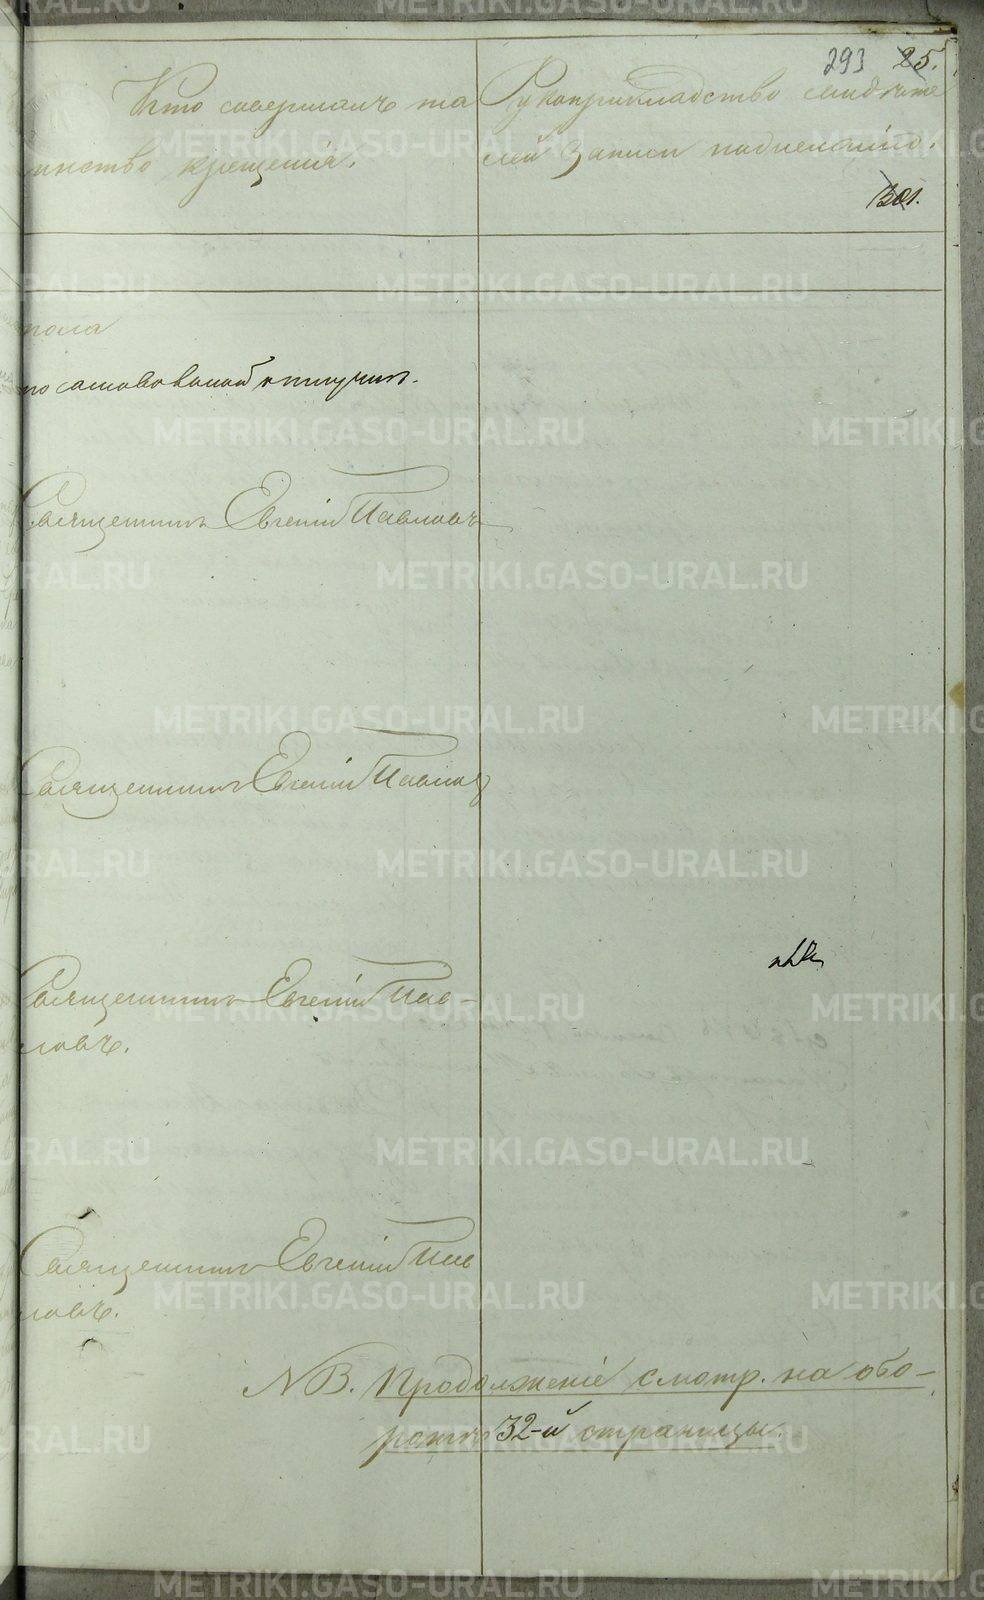 293 25.
Кто совершалъ та
инство крещенія.
Рукоприкладство свидѣте
лей записи по желанію.
301.
пола
Священникъ Евгеній Павловъ
Священникъ Евгеній Павловъ
Священникъ Евгеній Пав-
ловъ.
Священникъ Евгеній Пав
ловъ.
NB. Продолженіе смотр. на обо-
ротѣ 32-й страницы.
METRIKI.GASO-URAL.RU